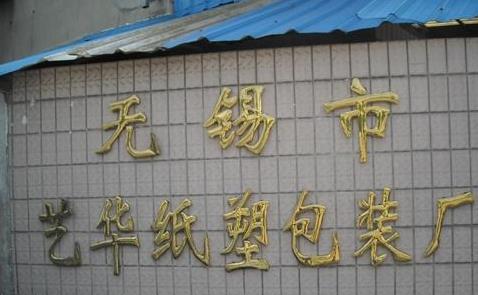 无锡市
艺华纸塑包装厂